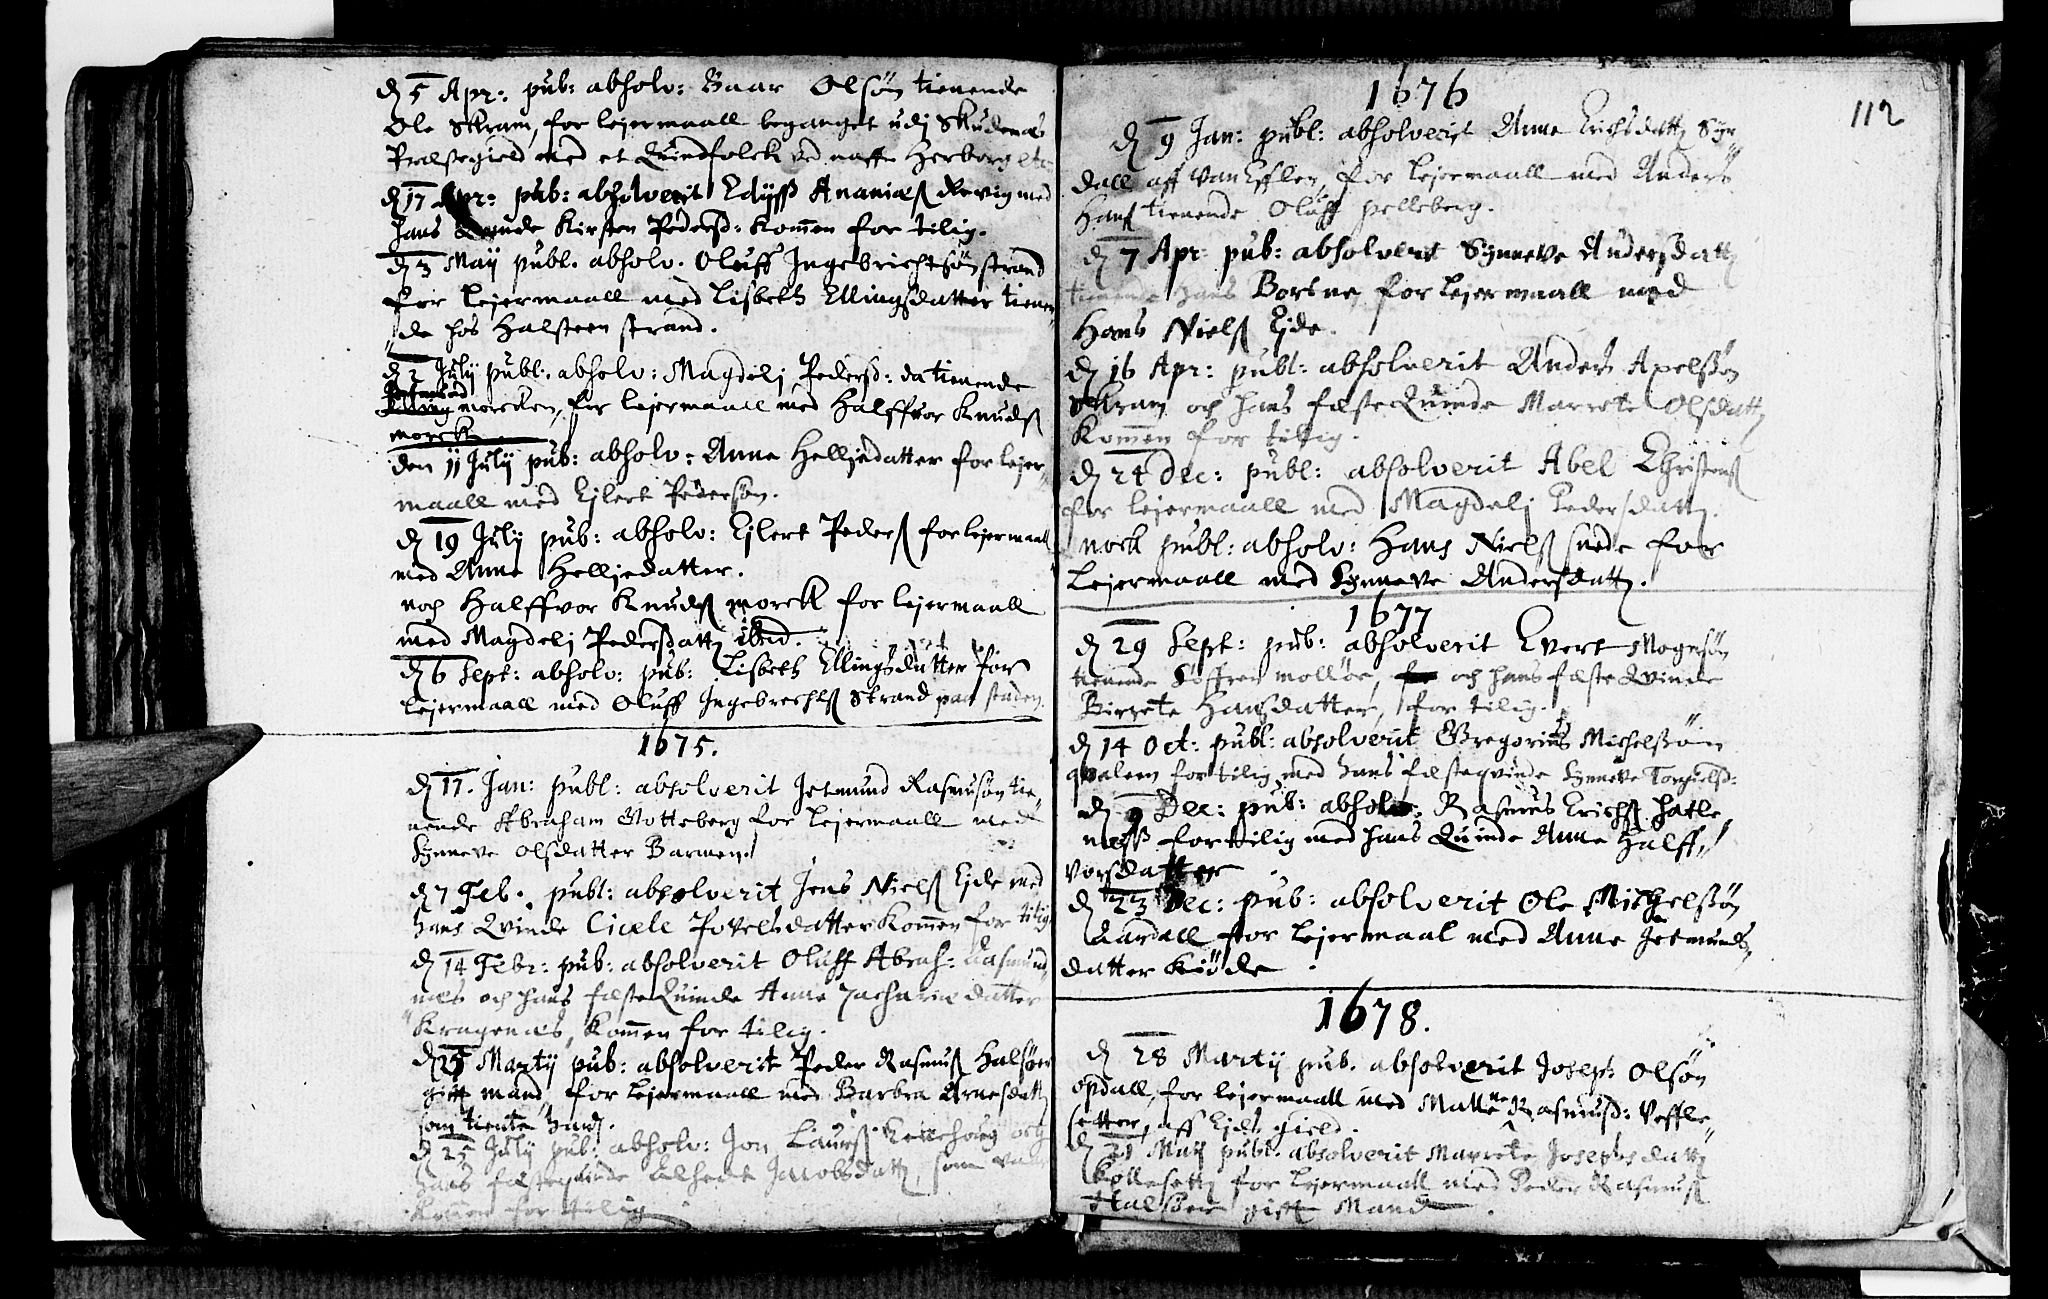 d 5 Apr: pub: absolv: Baar Olsøn tienende
Ole Skram, for lejermaall beganget udj Skudenæs
Præstegield med et Quindfolck ved naffn Herborg etc
d 17 Apr: pub: absolverit Ananiæs med
hans Qvinde Kirsten Pedersd: kommen for tilig.
d 3 Maij publ. absolv. Oluff Ingebrichtsøn strand
for lejermaall med Lisbeth Ellingsdatter tienen
de hos Halsteen strand.
d 2 Julij publ. absolv: Magdelj Pedersd: da tienende
morcken, for lejermaall med Halffvor Knuds
morck
den 11 Julij pub: absolv: Anne Helljedatter for lejer
maall med Ejlert Pedersøn.
d 19 Julij pub: absolv: Ejlert Peders for lejermaall
med Anne Helljedatter.
noch Halffvor Knuds morck for lejermaall
med Magdelj Pedersdatt ibid.
d 6 Sept: absolv: pub: Lisbeth Ellingsdatter for
lejermaall med Oluff Ingebrechts Strand paa
1675.
d 17. Jan: publ: absolverit Jetmund Rasmusøn tie
nende Abraham Gotteberg for lejermaall med
Synneve Olsdatter Barmen.
d 7 Feb. publ: absolverit Jens Niels Ejde med
hans Qvinde Cicele Povelsdatter kommen for tilig
d 14 Febr: pub: absolverit Oluff Abrah: Aasmund
næs och hans fæste Quinde Anne Zachariæ datter
Kragenæs, kommen for tilig.
d 25 Martij pub: absolverit Peder Rasmus Halsøer
gifft mand, for lejermaall med Barbra Arnesdatt
som tiente hans.
d 25 Julij pub: absolv: Jon Laurs och
hans fæsteqvinde Alhedt Jacobsdatt, som
for tilig
1676
112
d 9 Jan: publ: absolverit Anne Erichsdatt Syr
dall aff VanElffven, for lejermaall med Anders
Hans tienende Oluff pelleberg.
d 7 Apr: pub: absolverit Synneve Andersdatt
tienende hans Borsne, for lejermaall med
Hans Niels Ejde.
d 16 Apr: publ: absolverit Anders Axelssøn
Skram och hans fæste Quinde Marrete Olsdatt
kommen for tilig.
d 24 Dec: publ: absolverit Abel Christens
for lejermaall med Magdelj Pedersdatt.
nock publ: absolv: Hans Niels for
Lejermaall med Synneve Andersdatt.
1677
d 29 Sept: pub: absolverit Evert Mognsøn
tienende Søffren molløe, och hans fæste Qvinde
Birgete Hansdatter, for tilig.
d 14 Oct: publ: absolverit Gregorius Michelssøn
qvalem for tilig med hans fæsteqvinde Synneve
d 9 Dec: pub: absolv: Rasmus Erichs hatle
næss for tilig med hans Quinde Anne Halff
vorsdatter
d 23 Dec: pub: absolverit Ole Michelssøn
Aardall for lejermaal med Anne Jetmunds
datter Kiøde
1678.
d 28 Martij pub. absolverit Joseph Olsøn
opdall, for lejermaall med Rasmusd: Veffle
setter, aff Ejds gield.
d 21 Maij publ: absolverit Marrete Josephsdatt
for lejermaall med Peder Rasmus
Halsøer gifft Mand.